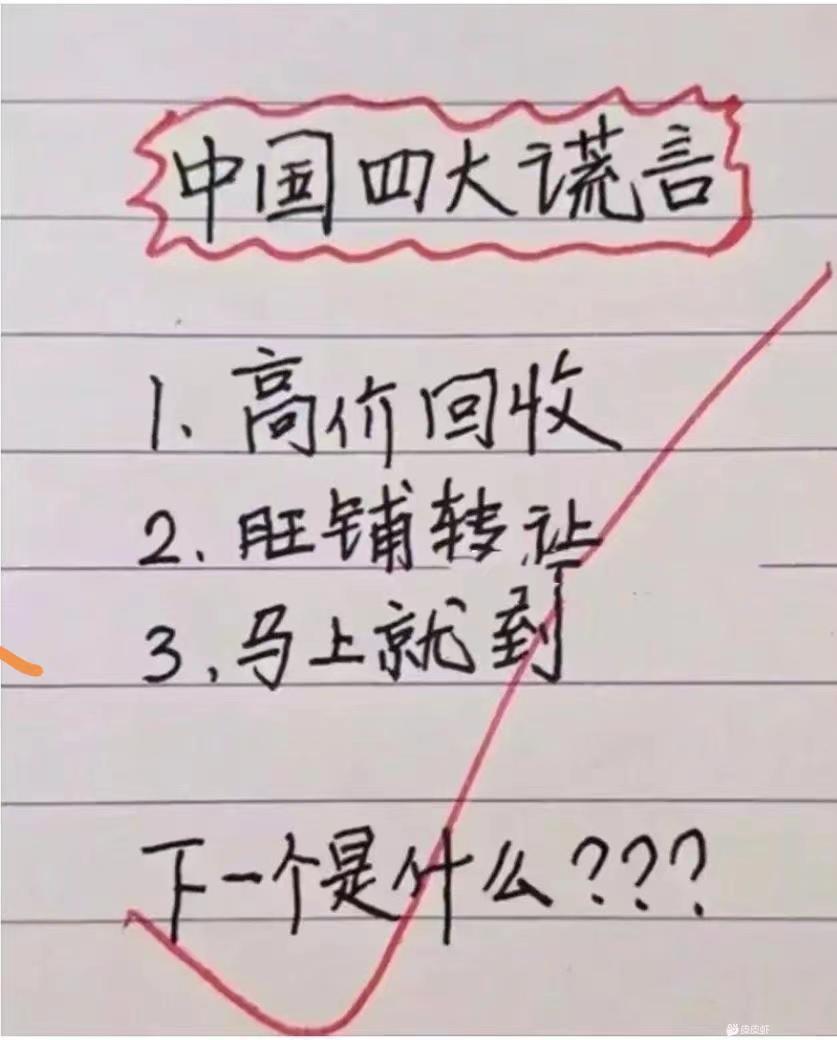 中国四大谎言
1、高价回收
2、旺铺转让
3、马上就到
下一个是什么???
皮皮虾